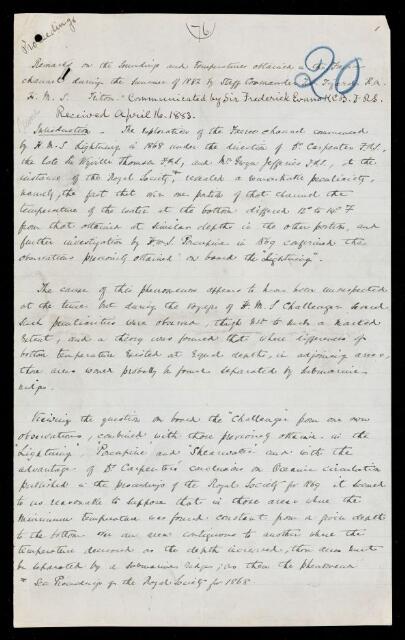 Proceedings
76
1
20
Remarks on the Soundings and temperatures obtained in the Faeroe
channel during the summer of 1882 by Staff Commander Tizard R.N.
H. M. S. Triton. Communicated by Sir Frederick Evans K.C.B. F.R.S.
Received April 16. 1883.
Introduction - The Exploration of the Faeroe channel commenced
by H.M.S Lightning in 1868 under the direction of Dr Carpenter F.R.S,
the late Sir Wyville Thomson F.R.S, and Mr Gwyn Jeffreys F.R.S, at the
instance of the Royal Society*, revealed a remarkable peculiarity,
namely, the fact that over one portion of that channel the
temperature of the water at the bottom differed 12° to 14° F
from that obtained at similar depths in the other portion, and
further investigation by H.M.S. Porcupine in 1869 confirmed the
observations previously obtained on board the "Lightning".
The cause of this phenomenon appears to have been unsuspected
at the time but during the voyage of H. M. S Challenger several
such peculiarities were observed, though not to such a marked
Extent, and a theory was formed that where differences of
bottom temperature Existed at Equal depths, in adjoining areas,
those areas would probably be found separated by submarine
ridges.
Viewing the question on board the "Challenger" from our own
observations, combined with those previously obtained in the
"Lightning", "Porcupine" and "Shearwater" and with the
advantage of Dr Carpenter's conclusions on Oceanic circulation
published in the proceedings of the Royal Society for 1869 it seemed
to us reasonable to suppose that in those areas where the
minimum temperature was found constant from a given depth
to the bottom in an area contiguous to another where the
temperature decreased as the depth increased, those areas must
be separated by a submarine ridge; as then the phenomena
* See Proceedings of the Royal Society for 1868.